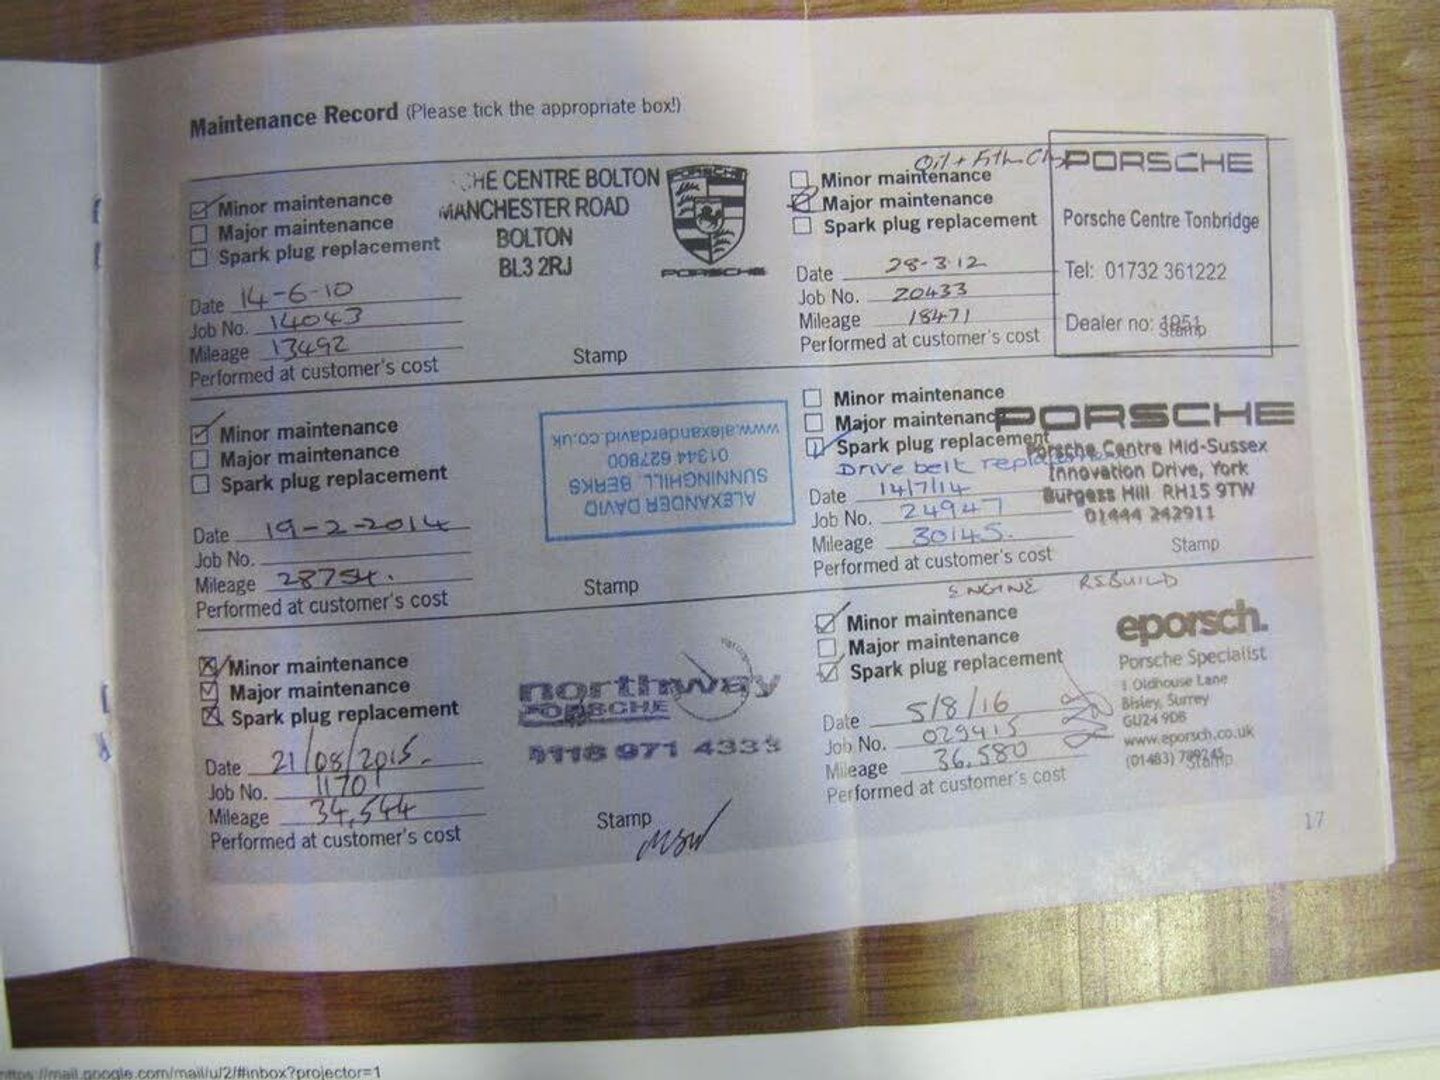 Maintenance Record (Please tick the appropriate box!)
Minor maintenance
Major maintenance
Spark plug replacement
HE CENTRE BOLTON
MANCHESTER ROAD
BOLTON
BL3 2RJ
PORSCHE
PORSCHE
Date 14-6-10
Job No. 14043
Mileage 13492
Performed at customer's cost
Stamp
Oil +
Minor maintenance
Major maintenance
Spark plug replacement
Date 28-3 12
Job No. 20433
Mileage 18471
Performed at customer's cost
PORSCHE
Porsche Centre Tonbridge
Tel: 01732 361222
Dealer no: 1951
Stamp
Minor maintenance
Major maintenance
Spark plug replacement
ALEXANDER DAVID
SUNNINGHILL BERKS
01344 627800
www.alexanderdavid.co.uk
Date 19-2-2014
Job No.
Mileage 28754.
Performed at customer's cost
Stamp
Minor maintenance
Major maintenance
Spark plug replacement
Drive belt
Date 14/7/14
Job No. 24947
Mileage 30145.
Performed at customer's cost
PORSCHE
Porsche Centre Mid-Sussex
Innovation Drive, York
Burgess Hill RH15 9TW
01444 242911
Stamp
Minor maintenance
Major maintenance
Spark plug replacement
northway
PORSCHE
0118 971 4333
Date 21/08/2015.
Job No. 1170
Mileage 34,544
Performed at customer's cost
Stamp
ENGINE REBUILD
Minor maintenance
Major maintenance
Spark plug replacement
Date 5/8/16
Job No. 029415
Mileage 36,580
Performed at customer's cost
eporsch.
Porsche Specialist
1 Oldhouse Lane
Bisley, Surrey
GU24 9DB
www.eporsch.co.uk
(01483)
Stamp
17
https://mail.google.com/mail/u/2/#inbox?projector=1